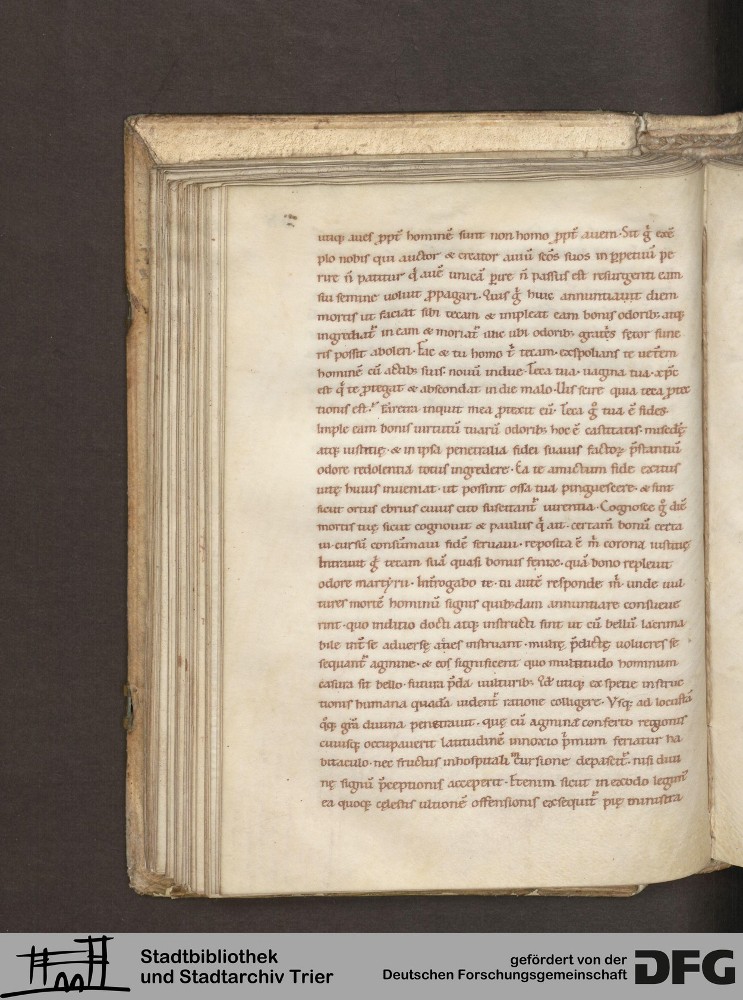 utiq; aues ꝓpt̄ hominē sunt non homo ꝓpt̄ auem. Sit g̊ exē
plo nobis qui auctor & creator auiū sc̄os suos in ꝑpetuū pe
rire n̄ patitur q̇ auē unicā ꝑire n̄ passus est resurgenti eam
sui semine uoluit ꝓpagari. Quis g̊ huic annuntiauit diem
mortis ut faciat sibi tecam & impleat eam bonis odorib; atq;
ingrediat᷑ in eam & moriat᷑ illic ubi odorib; gratis fetor fune
ris possit aboleri. Fac & tu homo t᷑ tecam. exspolians te ueterem
hominē cū actib; suis nouū indue. Teca tua. uagina tua. xp̄c
est q̇ te ꝓtegat & abscondat in die malo. Uis scire quia teca ꝓtec
tionis est. Faretra inquit mea ꝓtexit eū. Teca g̊ tua ē fides.
Imple eam bonis uirtutū tuarū odorib; hoc ē castitatis. misc̄dię
atq; iustitię. & in ipsa penetralia fidei suauis factoꝝ p̄stantiū
odore redolentia totus ingredere. Ea te amictum fide exitus
uitę huius inueniat. ut possint ossa tua pinguescere. & sint
sicut ortus ebrius cuius cito suscitant᷑ uirentia. Cognosce g̊ diē
mortis tuę sicut cognouit & paulus q̇ ait. certam̄ bonū certa
ui. cursū consūmaui fidē seruaui. reposita ē m̄ corona iustitię
Intrauit g̊ tecam suā quasi bonus fenix. quā bono repleuit
odore martyrii. Int᷑rogabo te. tu autē responde m̄. unde uul
tures mortē hominū signis quib;dam annuntiare consueue
rint. quo inditio docti atq; instructi sint ut cū bellū lacrima
bile int᷑ se aduersę acies instruant. multę p̄dictę uolucres se
sequant᷑ agmine. & eos significent quo multitudo hominum
casura sit bello. futura p̄da uulturib;. Id utiq; ex spetie instruc
tionis humana quadā uident᷑ ratione colligere. Usq; ad locustā
q̊q; gr̄a diuina penetrauit. quę cū agmina conferto regionis
cuiusq; occupauerit latitudinē innoxio p̄mum feriatur ha
bitaculo. nec fructus inhospitali incursione depascit᷑. nisi diui
nę signū p̄ceptionis acceperit. Etenim sicut in exodo legim᷒
ea quoq; cęlestis ultionē offensionis exsequit᷑ pię ministra
Stadtbibliothek
und Stadtarchiv Trier
gefördert von der
Deutschen Forschungsgemeinschaft
DFG